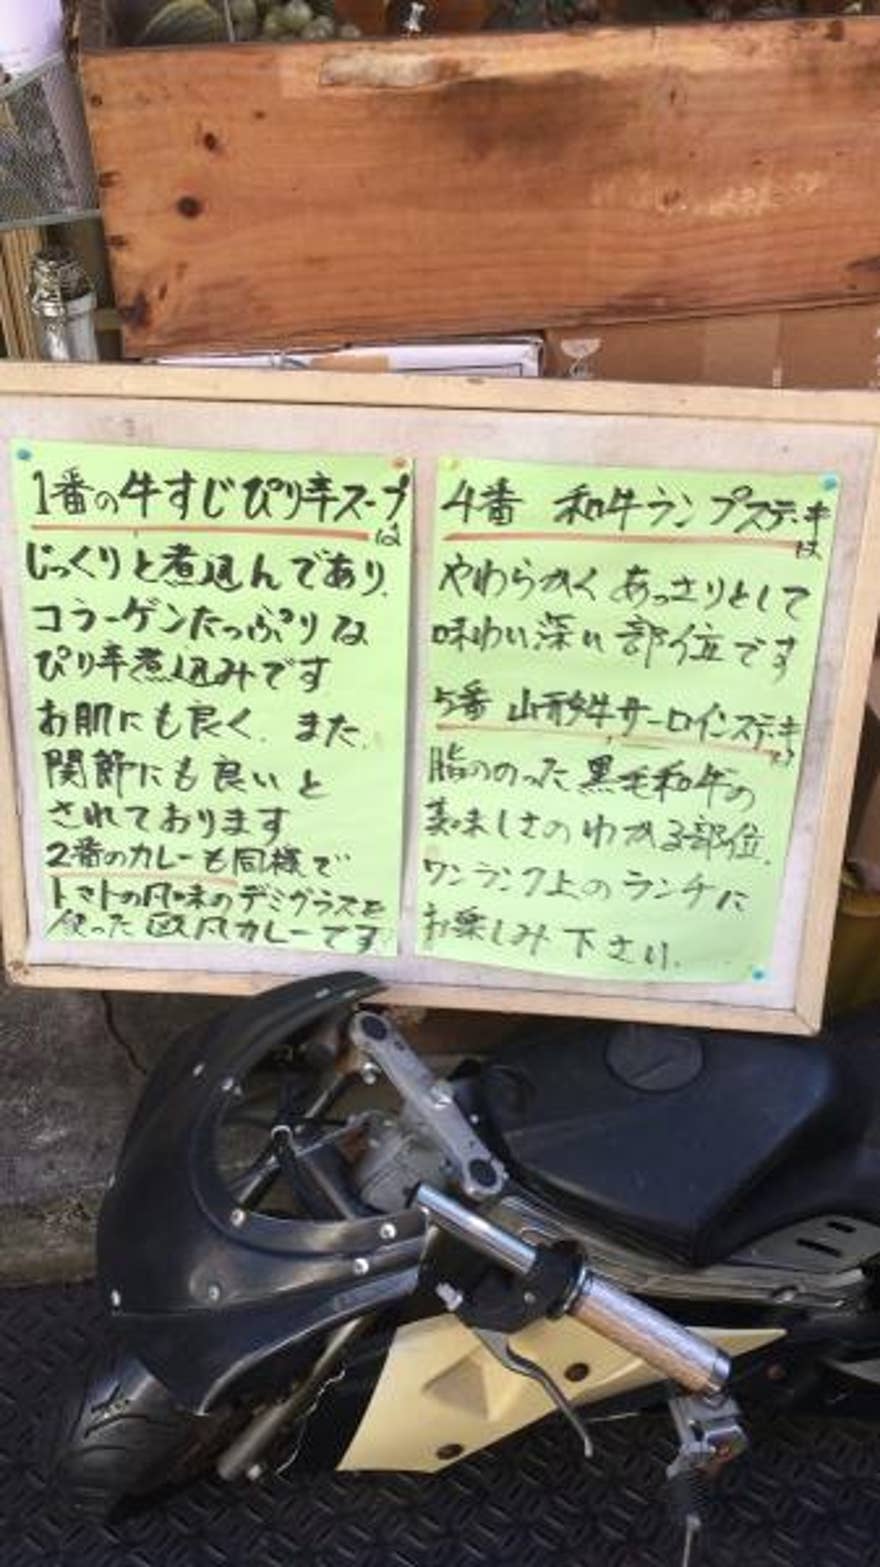 1番の牛すじぴり辛スープ
は
じっくりと煮込んであり、
コラーゲンたっぷりな
ぴり辛煮込みです
お肌にも良く、また、
関節にも良いと
されております
2番のカレーも同様で
トマトの風味のデミグラスを
使った欧風カレーです
4番 和牛ランプステーキ
は、
やわらかくあっさりとして
味わい深い部位です
5番 山形牛サーロインステーキ
は
脂ののった黒毛和牛の
美味しさのわかる部位、
ワンランク上のランチに
お楽しみ下さい。